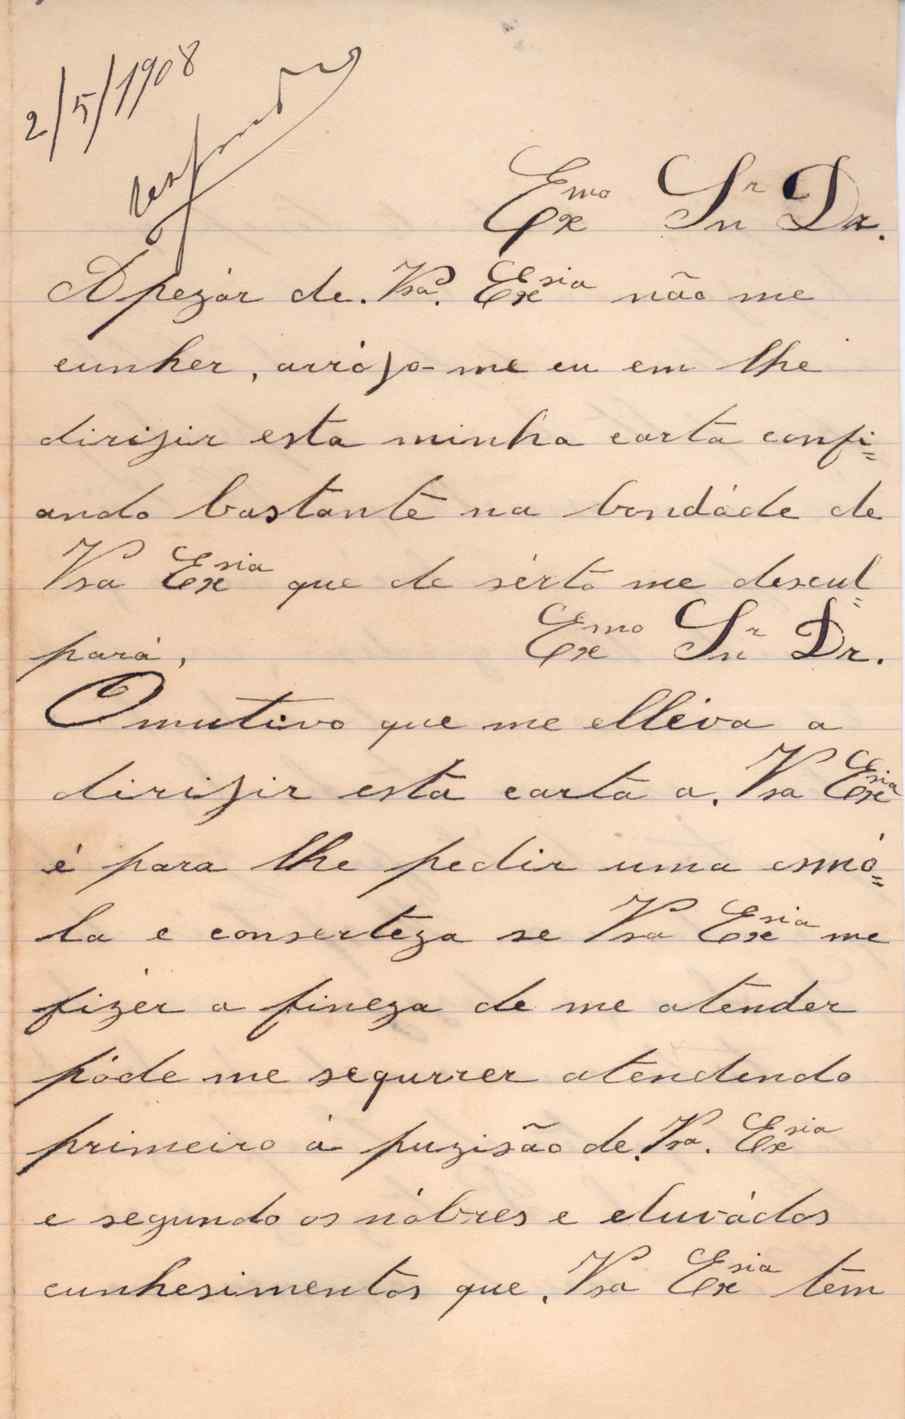 2/5/1908
Exmo Snr Dr.
Apezár de. Vsa. Exsia não me
cunher, arrójo-me eu em lhe
dirijir esta minha carta confi=
ando bastante na bondáde de
Vsa Exsia que de sérto me descul=
pará,
Exmo Snr Dr.
O mutivo que me elléva a
dirijir esta carta a. Vsa Exsia
é para lhe pedir uma esmó=
la e conserteza se Vsa Exsia me
fizér a fineza de me atender
póde me segurrer atendendo
primeiro á puzisão de. Vsa. Exsia
e segundo os nóbres e eluvádos
cunhesimentos que. Vsa Exsia têm